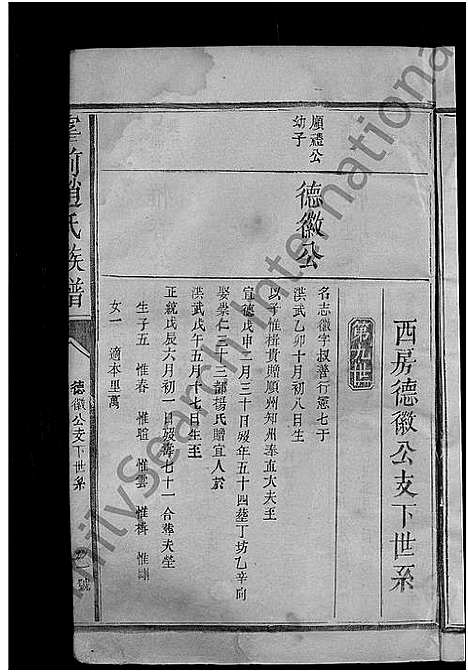 西房德徽公支下世系
第九世
順禮公
幼子
德徽公
名志徽字叔善行憲七于
洪武乙卯十月初八日生
以子惟楫貴贈順州知州奉直大夫王
宣德戊申二月三十日歿年五十四塟丁坊乙辛向
娶崇仁三十三都楊氏贈宜人於
洪武戊午五月十七日生王
正統戊辰六月初一日歿壽七十一合葬夫塋
生子五 惟春 惟瑄 惟雲 惟楫
女一 適本里萬
前趙氏族譜
德徽公支下世系
號
FamilySearch International